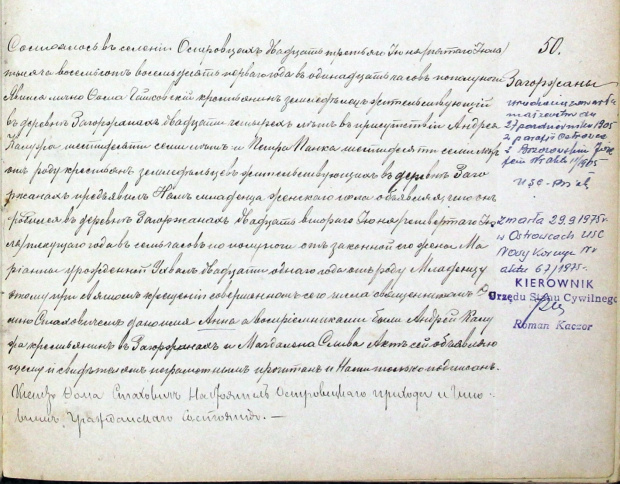 Состоялось въ селеніи Островцахъ двадцать третьяго Іюня /пятаго Іюля/
тысяча восемьсотъ восемьдесятъ перваго года въ одинадцать часовъ пополуночи
Явился лично Сосна крестьянинъ земледѣлецъ жительствующій
въ деревнѣ Загоржанахъ двадцати четырехъ лѣтъ въ присутствіи Андрея
Калуфа шестидесяти семи лѣтъ и Петра Папка шестидесяти семи лѣтъ
отъ роду крестьянъ земледѣльцевъ жительствующихъ въ деревнѣ Заго
ржанахъ предъявилъ Намъ младенца женскаго пола объявляя что онъ
родился въ деревнѣ Загоржанахъ двадцать втораго Іюня /четвертаго Ію
ля/ текущаго года въ семь часовъ по полуночи отъ законной его жены Ма
ріанны урожденной двадцати одного года отъ роду Младенцу
этому при святомъ крещеніи совершенномъ сего числа священникомъ
Стаховичемъ дано имя Анна а воспріемниками были Андрей Калу
фа крестьянинъ въ Загоржанахъ и Магдалена Слива Актъ сей объявляю
щему и свидѣтелямъ неграмотнымъ прочитанъ и Нами только подписанъ.
Ксендзъ Ѳома Стаховичъ Настоятель Островецкаго прихода и Чино
вникъ Гражданскаго Состоянія. —
50.
Загоржаны
małżeństwo
27 października 1905
z parafii Ostrowce
z
1905
USC
zmarła 29.9.1975r
w Ostrowcach USC
Nowy Korczyn Nr
aktu 67/1975r.
KIEROWNIK
Urzędu Stanu Cywilnego
Roman Kaczor